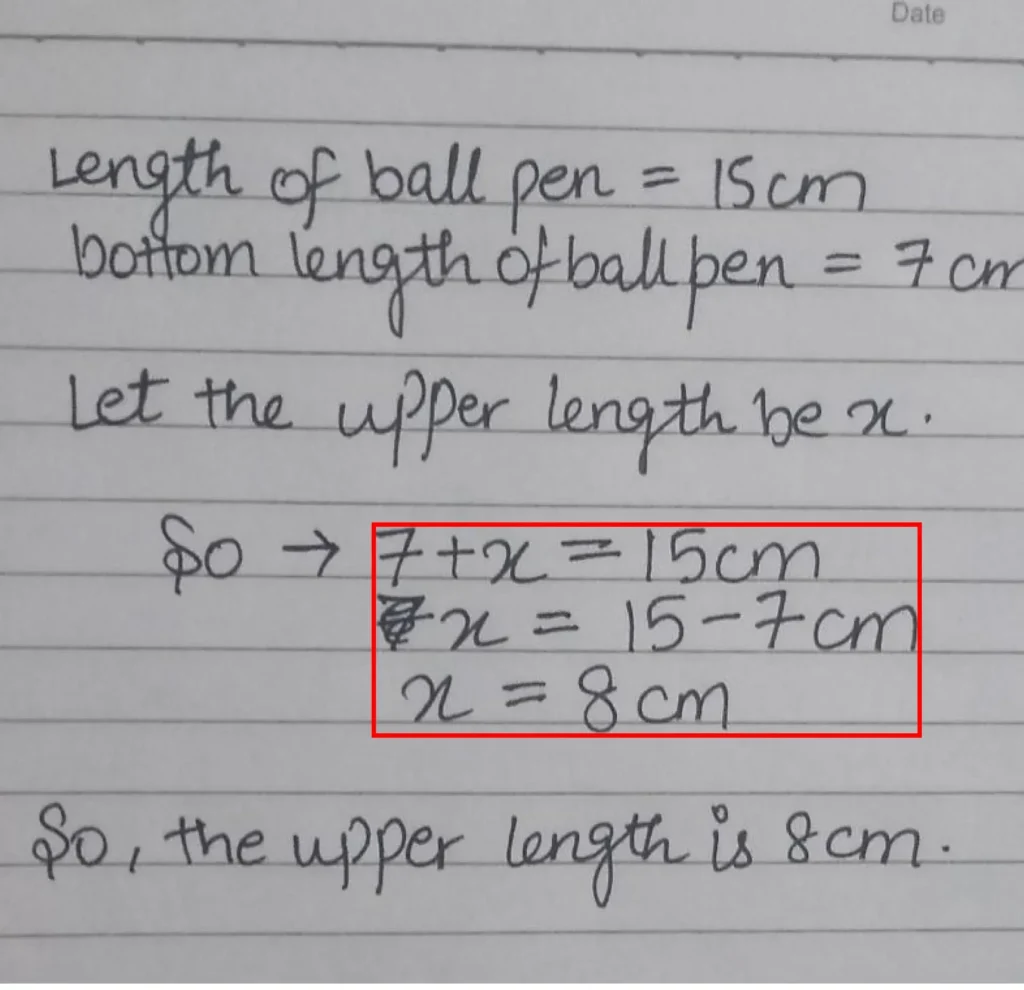 Date
Length of ball pen = 15cm
bottom length of ball pen = 7 cm
Let the upper length be x.
So → 7+x = 15cm
x = 15-7cm
x = 8cm
So, the upper length is 8cm.